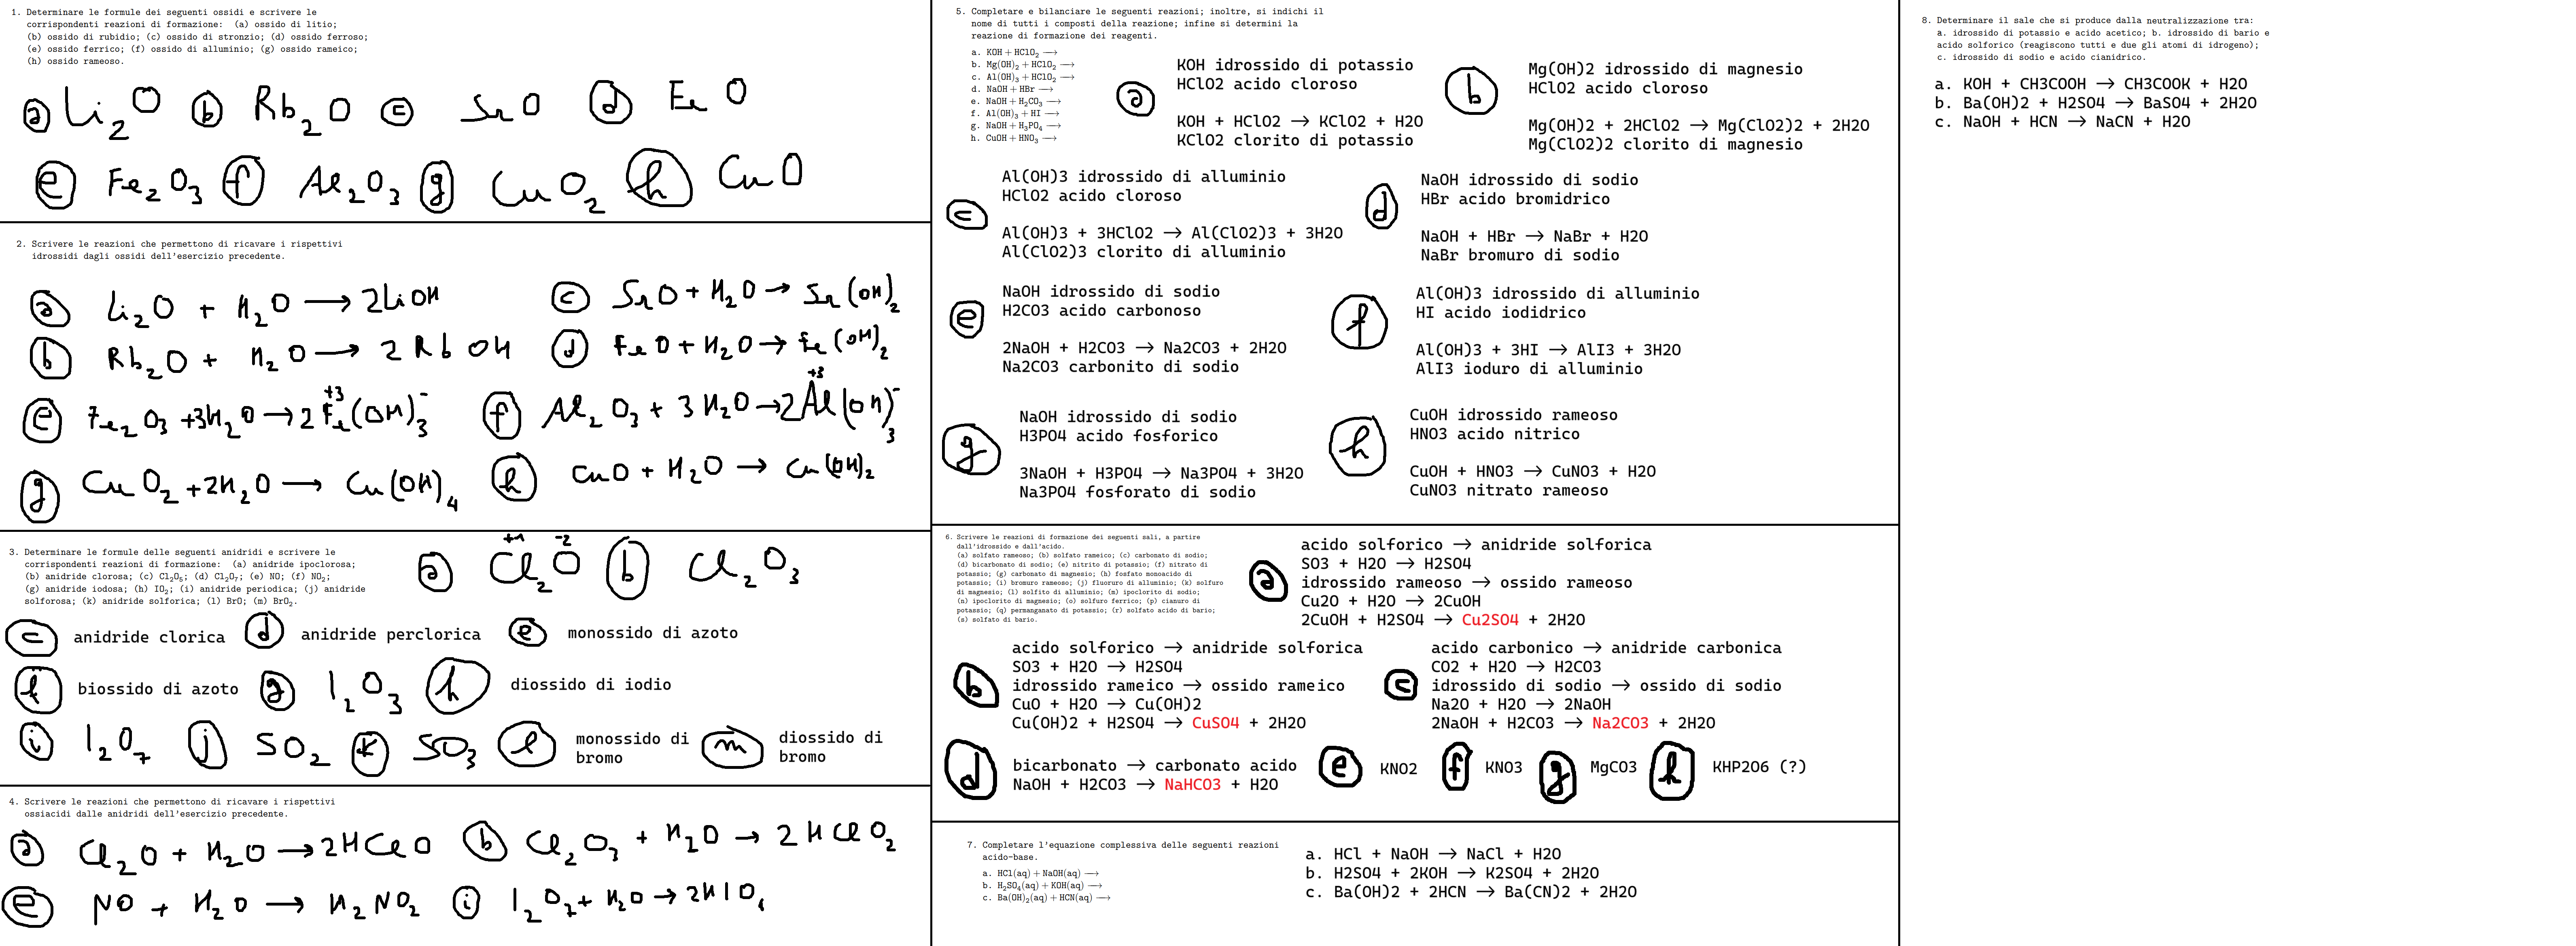 1. Determinare le formule dei seguenti ossidi e scrivere le
corrispondenti reazioni di formazione: (a) ossido di litio;
(b) ossido di rubidio; (c) ossido di stronzio; (d) ossido ferroso;
(e) ossido ferrico; (f) ossido di alluminio; (g) ossido rameico;
(h) ossido rameoso.
a Li₂O b Rb₂O c SrO d FeO
e Fe₂O₃ f Al₂O₃ g CuO₂ h CuO
2. Scrivere le reazioni che permettono di ricavare i rispettivi
idrossidi dagli ossidi dell'esercizio precedente.
a Li₂O + H₂O → 2LiOH
c SrO + H₂O → Sr(OH)₂
b Rb₂O + H₂O → 2RbOH
d FeO + H₂O → Fe(OH)₂
e Fe₂O₃ + 3H₂O → 2Fe⁺³(OH)₃⁻
f Al₂O₃ + 3H₂O → 2Al⁺³(OH)₃⁻
g CuO₂ + 2H₂O → Cu(OH)₄
h CuO + H₂O → Cu(OH)₂
3. Determinare le formule delle seguenti anidridi e scrivere le
corrispondenti reazioni di formazione: (a) anidride ipoclorosa;
(b) anidride clorosa; (c) Cl₂O₅; (d) Cl₂O₇; (e) NO; (f) NO₂;
(g) anidride iodosa; (h) IO₂; (i) anidride periodica; (j) anidride
solforosa; (k) anidride solforica; (l) BrO; (m) BrO₂.
+1 -2
a Cl₂O b Cl₂O₃
c anidride clorica d anidride perclorica e monossido di azoto
f biossido di azoto g I₂O₃ h diossido di iodio
i I₂O₇ j SO₂ k SO₃ l monossido di bromo m diossido di bromo
4. Scrivere le reazioni che permettono di ricavare i rispettivi
ossiacidi dalle anidridi dell'esercizio precedente.
a Cl₂O + H₂O → 2HClO b Cl₂O₃ + H₂O → 2HClO₂
e NO + H₂O → H₂NO₂ i I₂O₇ + H₂O → 2HIO₄
5. Completare e bilanciare le seguenti reazioni; inoltre, si indichi il
nome di tutti i composti della reazione; infine si determini la
reazione di formazione dei reagenti.
a. KOH + HClO₂ →
b. Mg(OH)₂ + HClO₂ →
c. Al(OH)₃ + HClO₂ →
d. NaOH + HBr →
e. NaOH + H₂CO₃ →
f. Al(OH)₃ + HI →
g. NaOH + H₃PO₄ →
h. CuOH + HNO₃ →
a
KOH idrossido di potassio
HClO2 acido cloroso
KOH + HClO2 → KClO2 + H2O
KClO2 clorito di potassio
b
Mg(OH)2 idrossido di magnesio
HClO2 acido cloroso
Mg(OH)2 + 2HClO2 → Mg(ClO2)2 + 2H2O
Mg(ClO2)2 clorito di magnesio
c
Al(OH)3 idrossido di alluminio
HClO2 acido cloroso
Al(OH)3 + 3HClO2 → Al(ClO2)3 + 3H2O
Al(ClO2)3 clorito di alluminio
d
NaOH idrossido di sodio
HBr acido bromidrico
NaOH + HBr → NaBr + H2O
NaBr bromuro di sodio
e
NaOH idrossido di sodio
H2CO3 acido carbonoso
2NaOH + H2CO3 → Na2CO3 + 2H2O
Na2CO3 carbonito di sodio
f
Al(OH)3 idrossido di alluminio
HI acido iodidrico
Al(OH)3 + 3HI → AlI3 + 3H2O
AlI3 ioduro di alluminio
g
NaOH idrossido di sodio
H3PO4 acido fosforico
3NaOH + H3PO4 → Na3PO4 + 3H2O
Na3PO4 fosforato di sodio
h
CuOH idrossido rameoso
HNO3 acido nitrico
CuOH + HNO3 → CuNO3 + H2O
CuNO3 nitrato rameoso
6. Scrivere le reazioni di formazione dei seguenti sali, a partire
dall'idrossido e dall'acido.
(a) solfato rameoso; (b) solfato rameico; (c) carbonato di sodio;
(d) bicarbonato di sodio; (e) nitrito di potassio; (f) nitrato di
potassio; (g) carbonato di magnesio; (h) fosfato monoacido di
potassio; (i) bromuro rameoso; (j) fluoruro di alluminio; (k) solfuro
di magnesio; (l) solfito di alluminio; (m) ipoclorito di sodio;
(n) ipoclorito di magnesio; (o) solfuro ferrico; (p) cianuro di
potassio; (q) permanganato di potassio; (r) solfato acido di bario;
(s) solfato di bario.
a
acido solforico → anidride solforica
SO3 + H2O → H2SO4
idrossido rameoso → ossido rameoso
Cu2O + H2O → 2CuOH
2CuOH + H2SO4 → Cu2SO4 + 2H2O
b
acido solforico → anidride solforica
SO3 + H2O → H2SO4
idrossido rameico → ossido rameico
CuO + H2O → Cu(OH)2
Cu(OH)2 + H2SO4 → CuSO4 + 2H2O
c
acido carbonico → anidride carbonica
CO2 + H2O → H2CO3
idrossido di sodio → ossido di sodio
Na2O + H2O → 2NaOH
2NaOH + H2CO3 → Na2CO3 + 2H2O
d
bicarbonato → carbonato acido
NaOH + H2CO3 → NaHCO3 + H2O
e KNO2 f KNO3 g MgCO3 h KHP2O6 (?)
7. Completare l'equazione complessiva delle seguenti reazioni
acido-base.
a. HCl(aq) + NaOH(aq) →
b. H₂SO₄(aq) + KOH(aq) →
c. Ba(OH)₂(aq) + HCN(aq) →
a. HCl + NaOH → NaCl + H2O
b. H2SO4 + 2KOH → K2SO4 + 2H2O
c. Ba(OH)2 + 2HCN → Ba(CN)2 + 2H2O
8. Determinare il sale che si produce dalla neutralizzazione tra:
a. idrossido di potassio e acido acetico; b. idrossido di bario e
acido solforico (reagiscono tutti e due gli atomi di idrogeno);
c. idrossido di sodio e acido cianidrico.
a. KOH + CH3COOH → CH3COOK + H2O
b. Ba(OH)2 + H2SO4 → BaSO4 + 2H2O
c. NaOH + HCN → NaCN + H2O